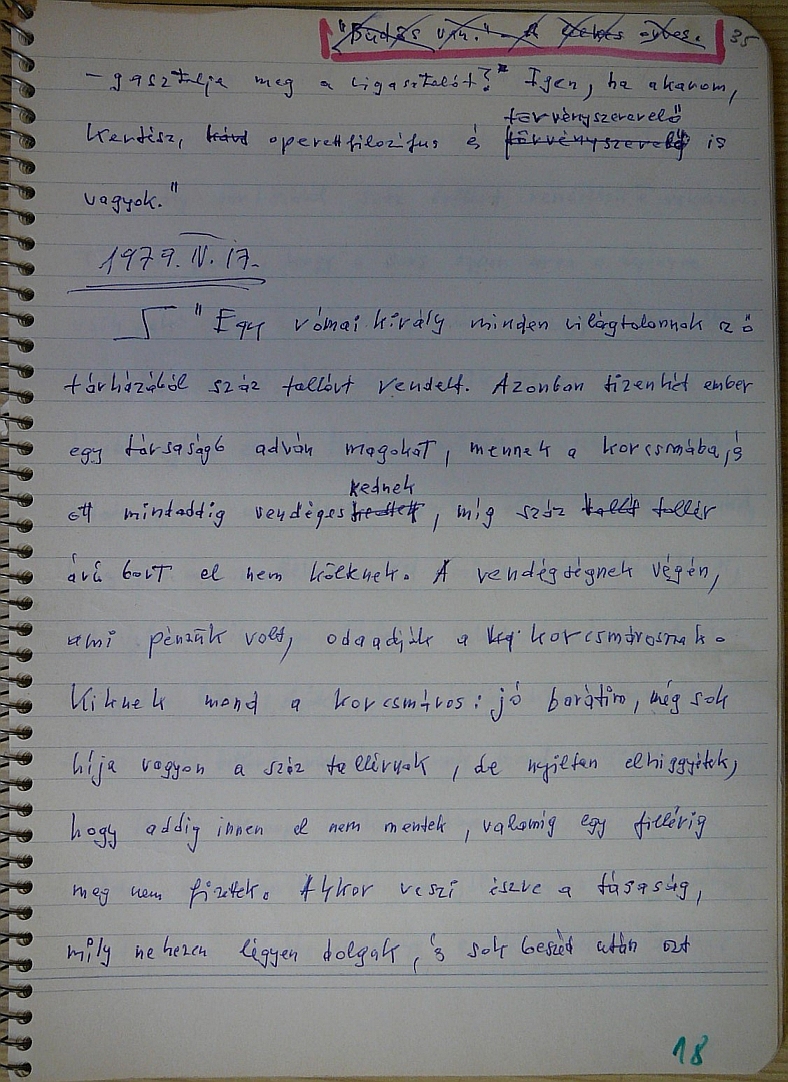 "Büdös van." - A cekás orvos. 35
- gasztalja meg a vigasztalót?" Igen, ha akarom,
törvényszerevelő
Kertész, operettfilozófus és törvényszerelő is
vagyok."
1979. IV. 17.
"Egy római király minden világtalannak az ő
tárházából száz tallért rendelt. Azonban tizenhét ember
egy társaságb adván magokat, mennek a korcsmába, s
kednek
ott mindaddig vendéges, míg száz tallér
árú bort el nem költnek. A vendégségnek végén,
ami pénzük volt, odaadják a korcsmárosnak.
Kiknek mond a korcsmáros: jó barátim, még sok
híja vagyon a száz tallérnak, de nyiltan elhiggyétek,
hogy addig innen el nem mentek, valamíg egy fillérig
meg nem fizetek. Akkor veszi észve a tásaság,
mily nehezen légyen dolgok, s sok beszéd után ezt
18